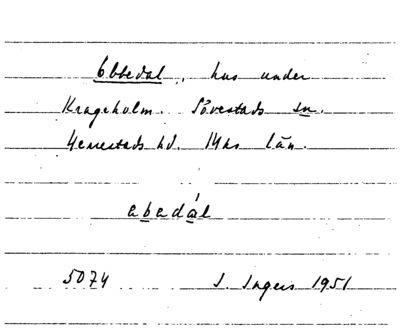 Ebbedal, hus under
Krageholm. Sövestads sn.
Herrestads hd. Mhs län.
ebadál
5074 I. Ingers 1951